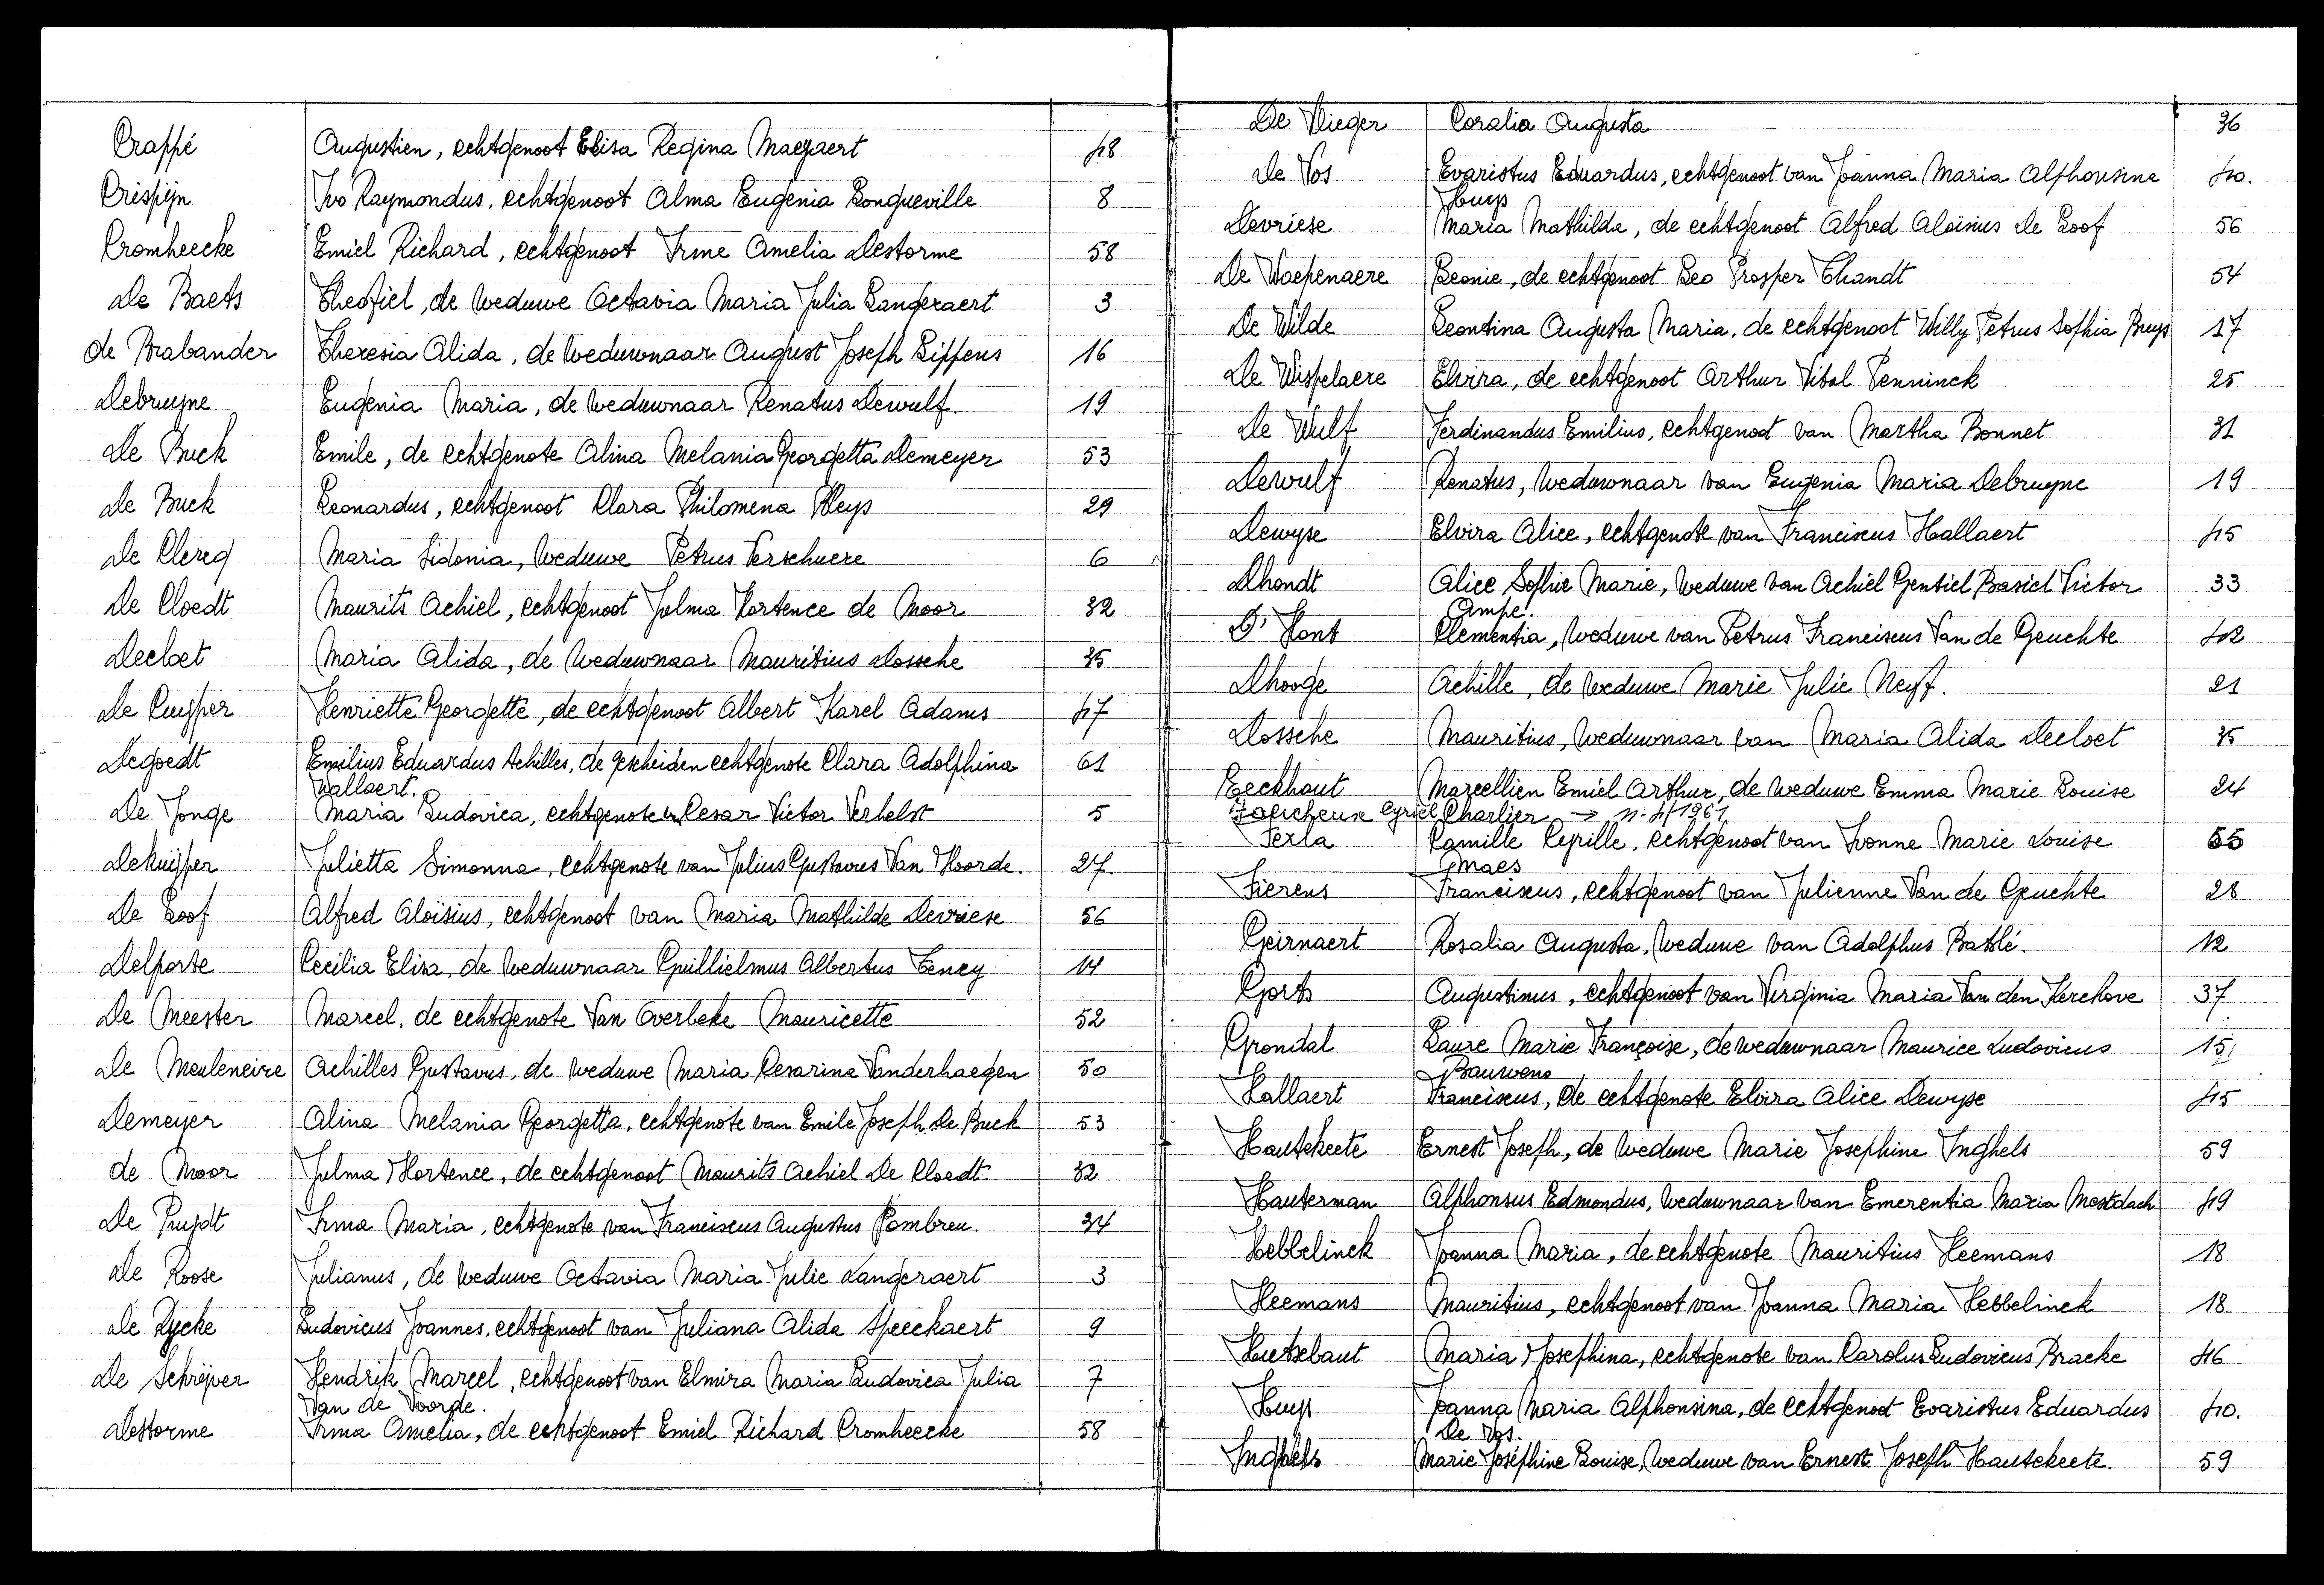 Crappé Augustien, echtgenoot Elisa Regina Maeyaert 48
Crispijn Ivo Raymondus, echtgenoot Alma Eugenia Longueville 8
Cromheecke Emiel Richard, echtgenoot Irme Amelia Destorme 58
De Baets Theofiel, de weduwe Octavia Maria Julia Langeraert 3
de Brabander Theresia Alida, de weduwnaar August Joseph Lippens 16
Debruyne Eugenia Maria, de weduwnaar Renatus Dewulf. 19
De Buck Emile, de echtgenote Alina Melania Georgetta Demeyer 53
De Buck Leonardus, echtgenoot Clara Philomena Pleys 29
De Clercq Maria Sidonia, weduwe Petrus Verschuere 6
De Cloedt Maurits Achiel, echtgenoot Julma Hortence de Moor 32
Decloet Maria Alida, de weduwnaar Mauritius Dossche 35
De Cuyper Henriette Georgette, de echtgenoot Albert Karel Adams 47
Degoedt Emilius Eduardus Achilles, de gescheiden echtgenote Clara Adolphina 61
Wallaert.
De Jonge Maria Ludovica, echtgenote v. Cesar Victor Verhelst 5
Dekuijper Julietta Simonna, echtgenote van Julius Gustavus Van Hoorde. 27.
De Loof Alfred Aloïsius, echtgenoot van Maria Mathilde Devriese 56
Delporte Cecilia Eliza, de weduwnaar Guillielmus Albertus Teney 14
De Meester Marcel, de echtgenote Van Overbeke Mauricette 52
De Meuleneire Achilles Gustavus, de weduwe Maria Cesarina Vanderhaegen 50
Demeyer Alina Melania Georgetta, echtgenote van Emile Joseph De Buck 53
de Moor Julma Hortence, de echtgenoot Maurits Achiel De Cloedt. 32
De Pruydt Irma Maria, echtgenote van Franciscus Augustus Pombreu. 34
De Roose Julianus, de weduwe Octavia Maria Julie Langeraert 3
De Rycke Ludovicus Joannes, echtgenoot van Juliana Alida Speeckaert 9
De Schrijver Hendrik Marcel, echtgenoot van Elmira Maria Ludovica Julia 7
Van de Voorde.
Destorme Irma Amelia, de echtgenoot Emiel Richard Cromheecke 58
De Vlieger Coralia Augusta 36
De Vos Evaristus Eduardus, echtgenoot van Joanna Maria Alphonsine 40.
Huys
Devriese Maria Mathilda, de echtgenoot Alfred Aloïsius De Loof 56
De Waepenaere Leonie, de echtgenoot Leo Prosper Thandt 54
De Wilde Leontina Augusta Maria, de echtgenoot Willy Petrus Sophia Buys 17
De Wispelaere Elvira, de echtgenoot Arthur Vital Penninck 25
De Wulf Ferdinandus Emilius, echtgenoot van Martha Bonnet 31
Dewulf Renatus, weduwnaar van Eugenia Maria Debruyne 19
Dewyse Elvira Alice, echtgenote van Franciscus Hallaert 45
Dhondt Alice Sophie Marie, weduwe van Achiel Gentiel Basiel Victor 33
Ampe.
D'Hont Clementia, weduwe van Petrus Franciscus Van de Geuchte 42
Dhooge Achille, de weduwe Marie Julie Neyt. 21
Dossche Mauritius, weduwnaar van Maria Alida Decloet 35
Eeckhout Marcellien Emiel Arthur, de weduwe Emma Marie Louise 24
Charlier
Faucheux Cyriel → n. 4/1961
Ferla Camille Cyrille, echtgenoot van Ivonne Marie Louise 55
Maes
Fierens Franciscus, echtgenoot van Julienne Van de Geuchte 28
Geirnaert Rosalia Augusta, weduwe van Adolphus Batslé. 12
Gorts Augustinus, echtgenoot van Virginia Maria Van den Kerchove 37
Grondal Laure Marie Françoise, de weduwnaar Maurice Ludovicus 15
Bauwens
Hallaert Franciscus, de echtgenote Elvira Alice Dewyse 45
Hautekeete Ernest Joseph, de weduwe Marie Josephine Inghels 59
Hauterman Alphonsus Edmondus, weduwnaar van Emerentia Maria Mestdach 49
Hebbelinck Joanna Maria, de echtgenote Mauritius Heemans 18
Heemans Mauritius, echtgenoot van Joanna Maria Hebbelinck 18
Huetsebaut Maria Josephina, echtgenote van Carolus Ludovicus Bracke 46
Huys Joanna Maria Alphonsina, de echtgenoot Evaristus Eduardus 40.
De Vos.
Inghels Marie Joséphine Louise, weduwe van Ernest Joseph Hautekeete. 59